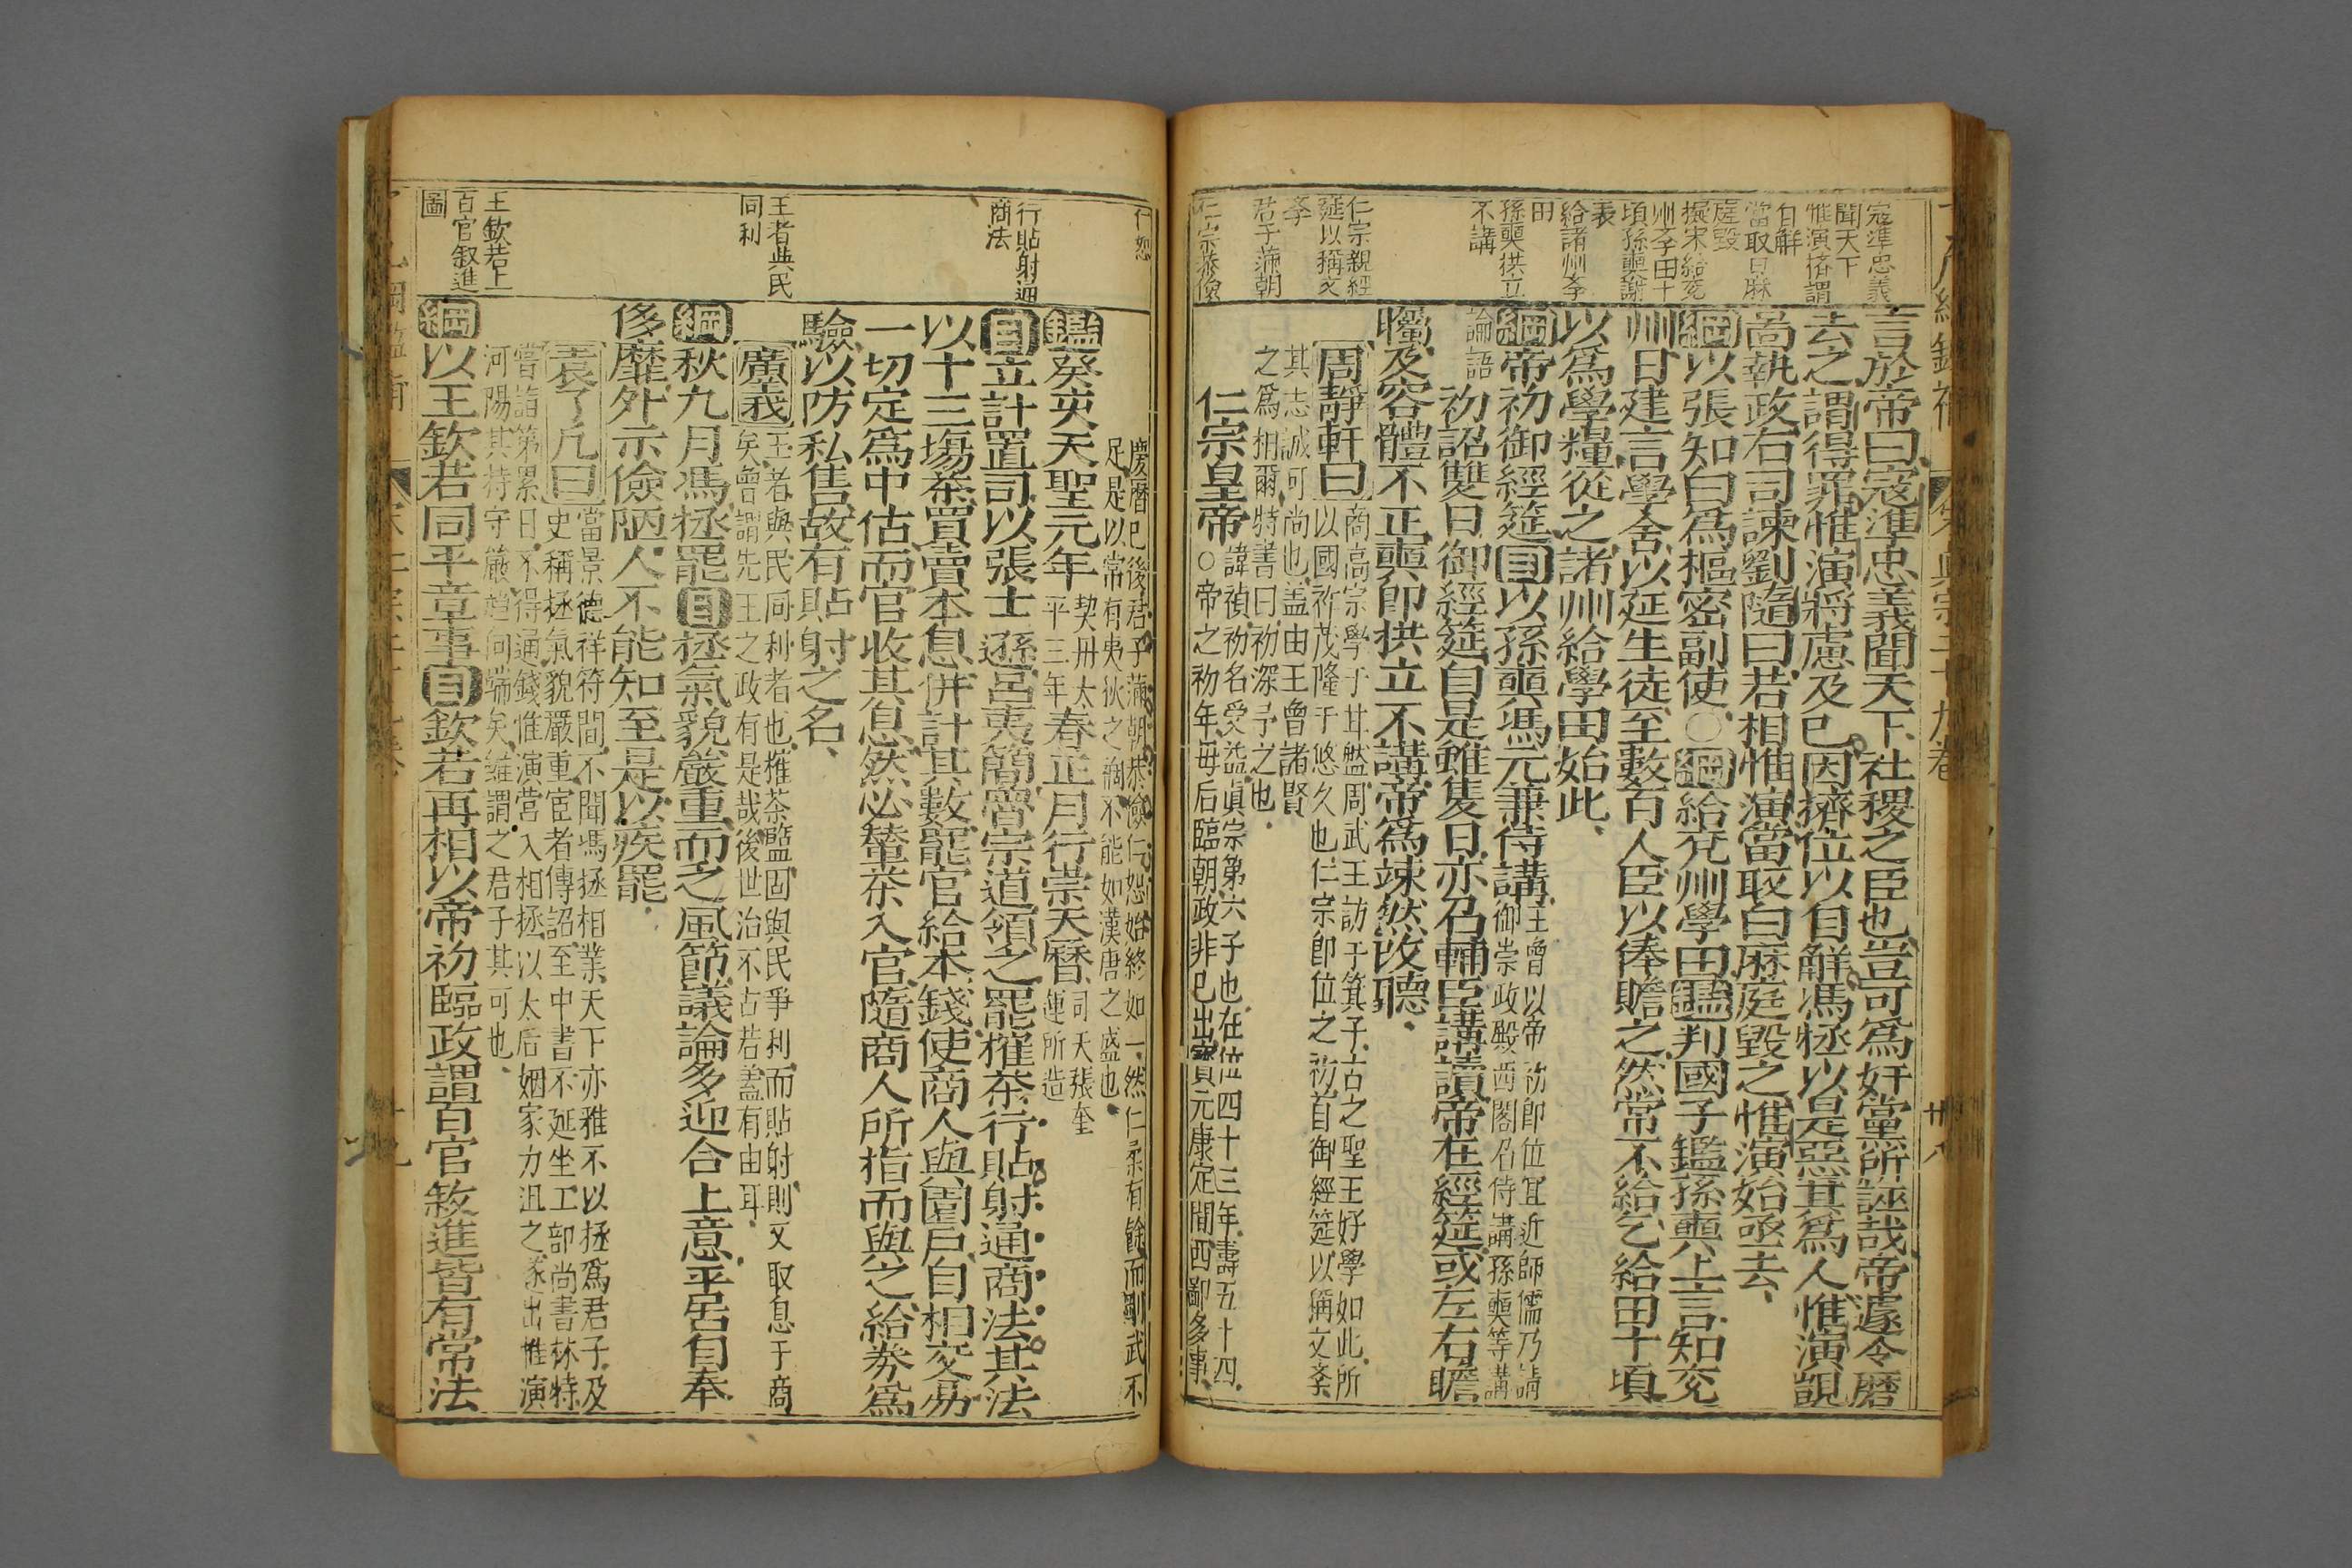 寇準忠義
聞天下
惟演擠謂
自解
當取白麻
庭毀
擬宋給兖
州孝田十
頃孫奭謝
表
給諸州孝
田
孫奭拱立
不講
仁宗親經
延以稱文
孝
君子滿朝
仁宗恭儉
言於帝曰寇準忠義聞天下社稷之臣也豈可爲奸黨所誣哉帝遽令磨
去之謂得罪惟演將慮及已因擠位以自解馮拯以是惡其爲人惟演覬
啚執政右司諫劉隨曰若相惟演當取白麻庭毀之惟演始亟去
綱以張知白爲樞密副使○綱給兖州學田鑑判國子鑑孫奭上言知兖
州日建言學舍以延生徒至數百人臣以俸贍之然常不給乞給田十頃
以爲學糧從之諸州給學田始此
綱帝初御經筵目以孫奭馮元兼侍講王曾以帝初即位宜近師儒乃請
御崇政殿西閣召侍講孫奭等講
論語初詔雙日御經筵自是雖隻日亦召輔臣講讀帝在經筵或左右瞻
矚及容體不正奭卽拱立不講帝爲竦然改聽
周靜軒曰商高宗學于甘盤周武王訪于箕子古之聖王好學如此所
以國祚茂隆于悠久也仁宗卽位之初首御經筵以稱文孝
其志誠可尚也盖由王曾諸賢
之爲相爾特書曰初深予之也
仁宗皇帝諱禎初名受益眞宗第六子也在位四十三年壽五十四
○帝之初年母后臨朝政非已出寳元康定間西鄙多事
仁恕
行貼射通
商法
王者與民
同利
王欽若上
百官叙進
圖
慶曆已後君子滿朝恭儉仁恕始終如一然仁柔有餘而剛武不
足是以常有夷狄之禍不能如漢唐之盛也
鑑癸亥天聖元年契丹太平三年春正月行崇天曆司天張奎運所造
目立計置司以張士遜呂夷簡魯宗道領之罷榷茶行貼射通商法其法
以十三塲茶買賣本息併計其數罷官給本錢使商人與園戶自相交易
一切定爲中估而官收其息然必輦茶入官隨商人所指而與之給券爲
驗以防私售故有貼射之名
廣義王者與民同利者也榷茶監固與民爭利而貼射則又取息于商
矣曾謂先王之政有是哉後世治不古若蓋有由耳
綱秋九月馮拯罷目拯氣貌嚴重而之風節議論多迎合上意平居自奉
侈靡外示儉陋人不能知至是以疾罷
袁了凡曰當景德祥符間不聞馮拯相業天下亦雅不以拯爲君子及
史稱拯氣貌嚴重宦者傳詔至中書不延坐工部尚書林特
嘗詣第累日不得通錢惟演營入相拯以太后姻家力沮之遂出惟演
河陽其持守嚴趨向端矣維謂之君子其可也
綱以王欽若同平章事目欽若再相以帝初臨政謂百官敘進皆有常法